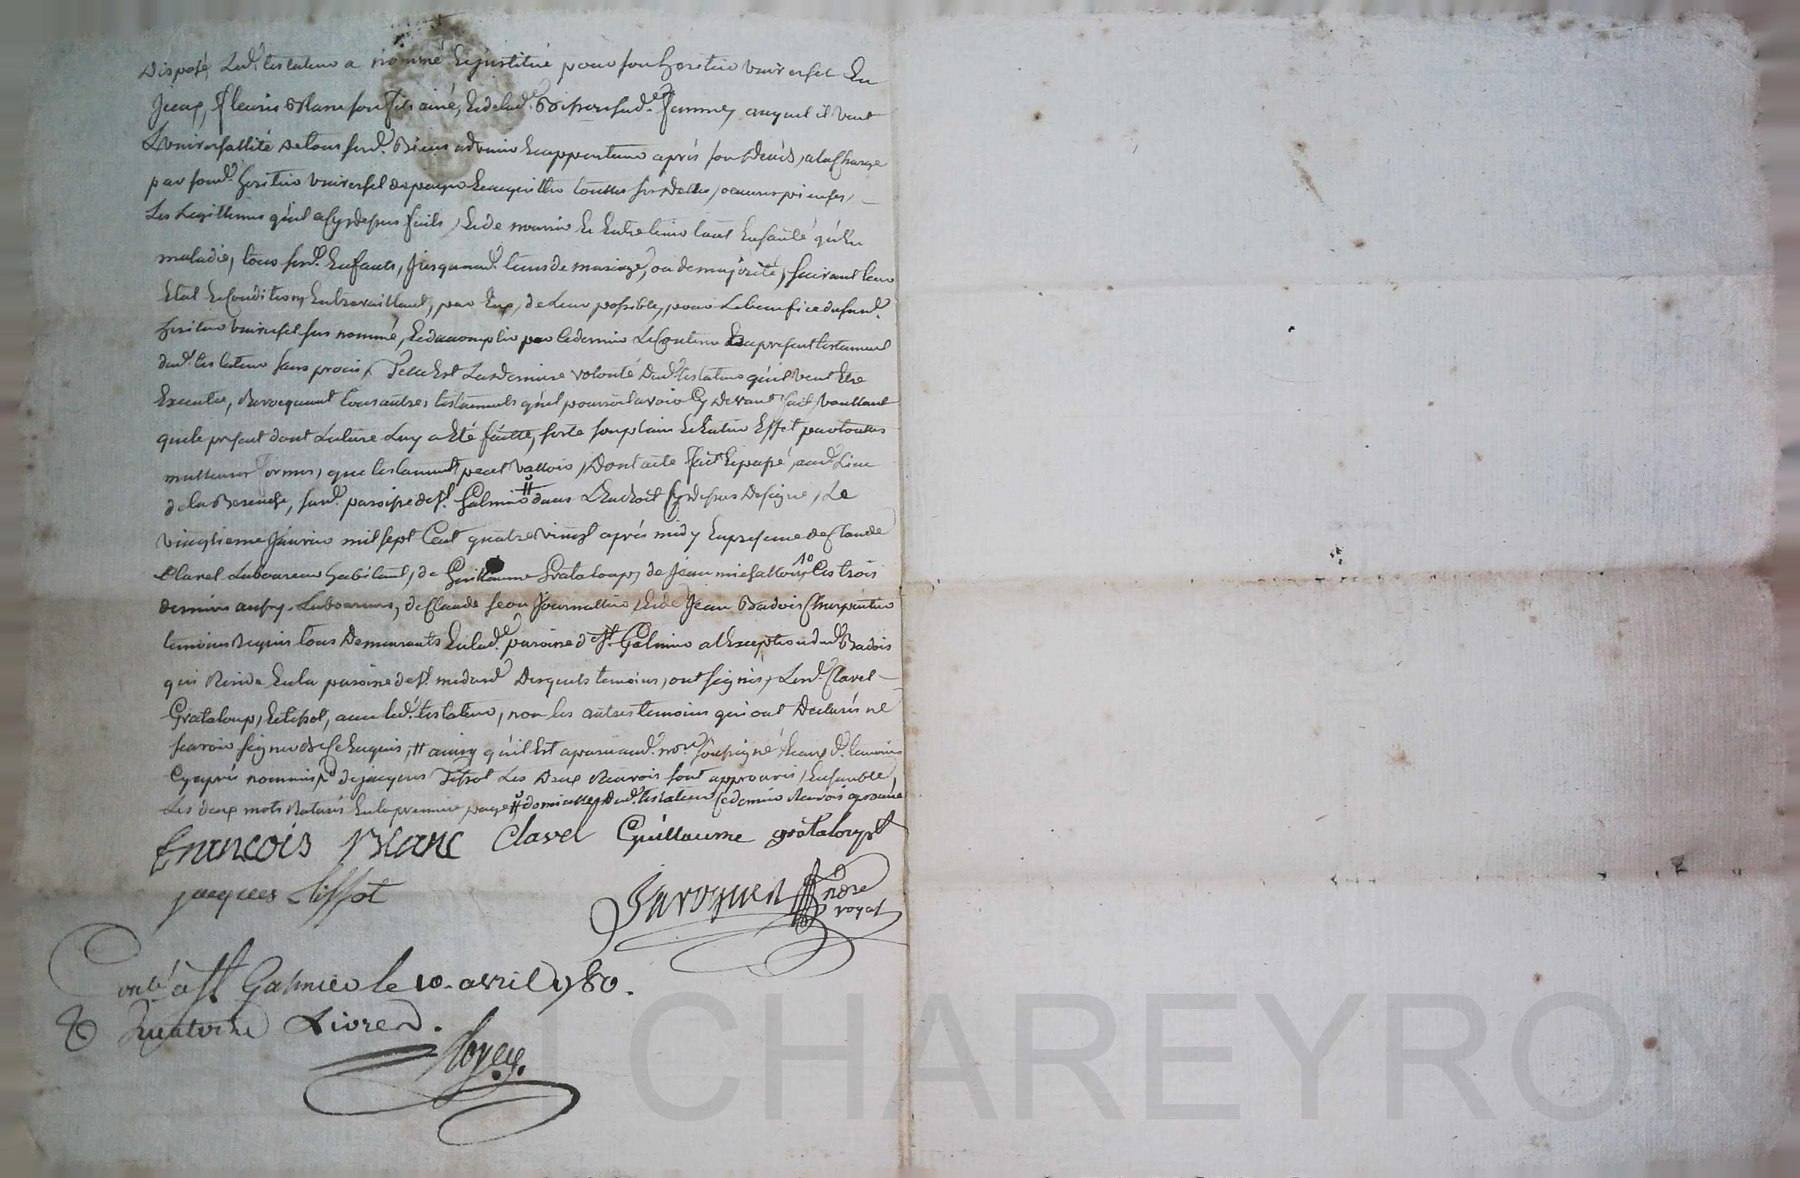 Disposé, Led. testateur a nommé & institué pour son heretier universel en
Iceux, Fleurie Blanc son fils ainé, & de lad. sad. femme, auquel il veut
L'universallité de tous sesd. Biens advenir & appartenir après son deces, a la charge
par sond. heritier universel de payer & acquitter touttes ses dettes, oeuvres pieuses,
Les Legittimes qu'il a cy dessus faits, & de nourrir & entretenir tant en santé qu'en
maladie, tous sesd. Enfants, jusqu'aud. tems de mariage, ou de majorité, suivant leur
Etat & condition, En travaillant, par Eux, de leur possible, pour le benefice dusd.
heritier universel sus nommé, & d'accomplir par ce dernier le contenu au present testament
dud. testateur sans procès, Telle Est la derniere volonté dud. testateur qu'il veut Etre
Executée, Revocquant tous autres testaments qu'il pourroit avoir cy devant fait, voullant
que le present dont lecture luy a Eté faitte, sorte son plain & Entier Effet par touttes
meilleures formes, que testament peut valloir, Dont acte Fait & passé, aud. Lieu
de la susd. paroisse de St. Galmier # dans L'Endroit cy dessus designé, Le
vingtieme Janvier mil sept Cent quatre vingt après midy En presence de Claude
Clavel Laboureur habitant, de Guillaume Grataloup, de Jean Les trois
derniers aussy Laboureurs, de Claude Journallier, & de Jean Badois Charpentier
temoins requis tous Demeurants En lad. paroisse de St. Galmier a l'Exception dud. Badois
qui Reside En la paroisse de St. medard Desquels temoins, ont signés, Lesd. Clavel
Grataloup, & tissot, avec led. testateur, non les autres temoins qui ont Declarés ne
scavoir signer de ce Enquis, # ainsy qu'il Est apparu aud. nore. soussigné, & aux d. temoins
Cy après nommés, & de jacques Tissot Les Deux Renvois sont approuvés, Ensemble,
Les deux mots Raturés En la premiere page # domicille dud. testateur ce dernier Renvoi aprouvé
francois Blanc Clavel Guillaume grataloup
jacques tissot
nore
royal
Con.lé a St Galmier le 10. avril 1780.
& Quatorze Livres.